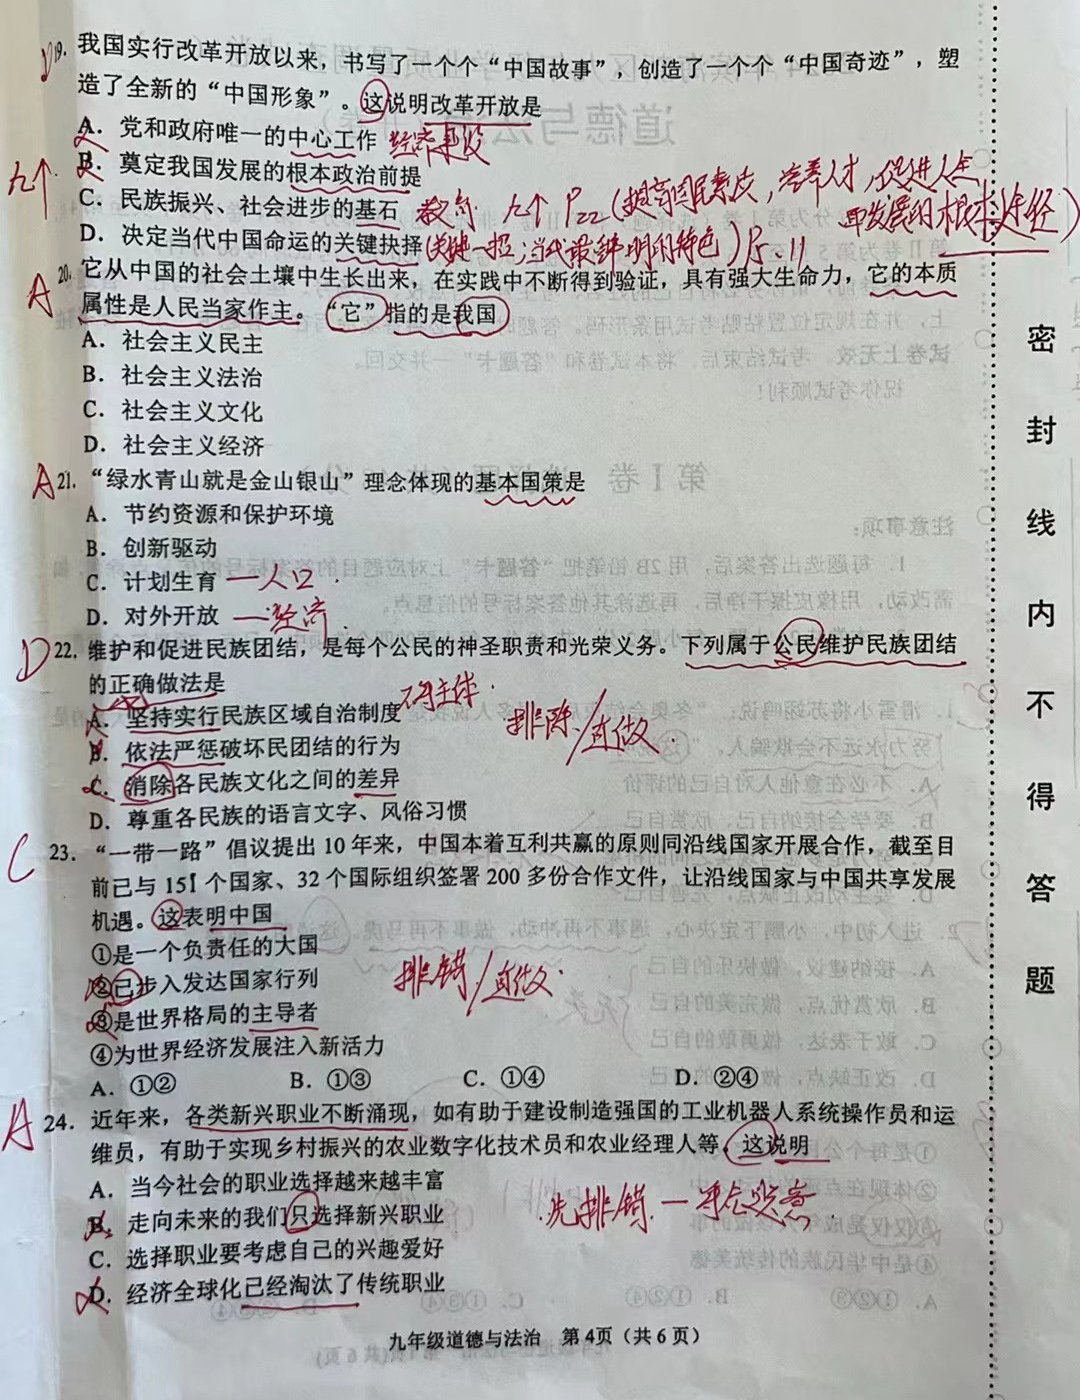 D 19. 我国实行改革开放以来，书写了一个个“中国故事”，创造了一个个“中国奇迹”，塑
造了全新的“中国形象”。这说明改革开放是
A. 党和政府唯一的中心工作 经济建设
B. 奠定我国发展的根本政治前提
九个
C. 民族振兴、社会进步的基石 教育 九个 P22（提高国民素质，培养人才，促进人全
面发展的根本途径）
D. 决定当代中国命运的关键抉择（关键一招，当代最鲜明的特色）P. 11
A 20. 它从中国的社会土壤中生长出来，在实践中不断得到验证，具有强大生命力，它的本质
属性是人民当家作主。“它”指的是我国
A. 社会主义民主
B. 社会主义法治
C. 社会主义文化
D. 社会主义经济
A 21. “绿水青山就是金山银山”理念体现的基本国策是
A. 节约资源和保护环境
B. 创新驱动
C. 计划生育 一人口
D. 对外开放 一经济
D 22. 维护和促进民族团结，是每个公民的神圣职责和光荣义务。下列属于公民维护民族团结
的正确做法是
A. 坚持实行民族区域自治制度 不同主体
B. 依法严惩破坏民团结的行为 排除/直做
C. 消除各民族文化之间的差异
D. 尊重各民族的语言文字、风俗习惯
C 23. “一带一路”倡议提出 10 年来，中国本着互利共赢的原则同沿线国家开展合作，截至目
前已与 151 个国家、32 个国际组织签署 200 多份合作文件，让沿线国家与中国共享发展
机遇。这表明中国
①是一个负责任的大国
②已步入发达国家行列 排错/直做
③是世界格局的主导者
④为世界经济发展注入新活力
A. ①② B. ①③ C. ①④ D. ②④
A 24. 近年来，各类新兴职业不断涌现，如有助于建设制造强国的工业机器人系统操作员和运
维员，有助于实现乡村振兴的农业数字化技术员和农业经理人等。这说明
A. 当今社会的职业选择越来越丰富
B. 走向未来的我们只选择新兴职业 先排错 一再心题意
C. 选择职业要考虑自己的兴趣爱好
D. 经济全球化已经淘汰了传统职业
九年级道德与法治 第4页（共 6 页）
密封线内不得答题